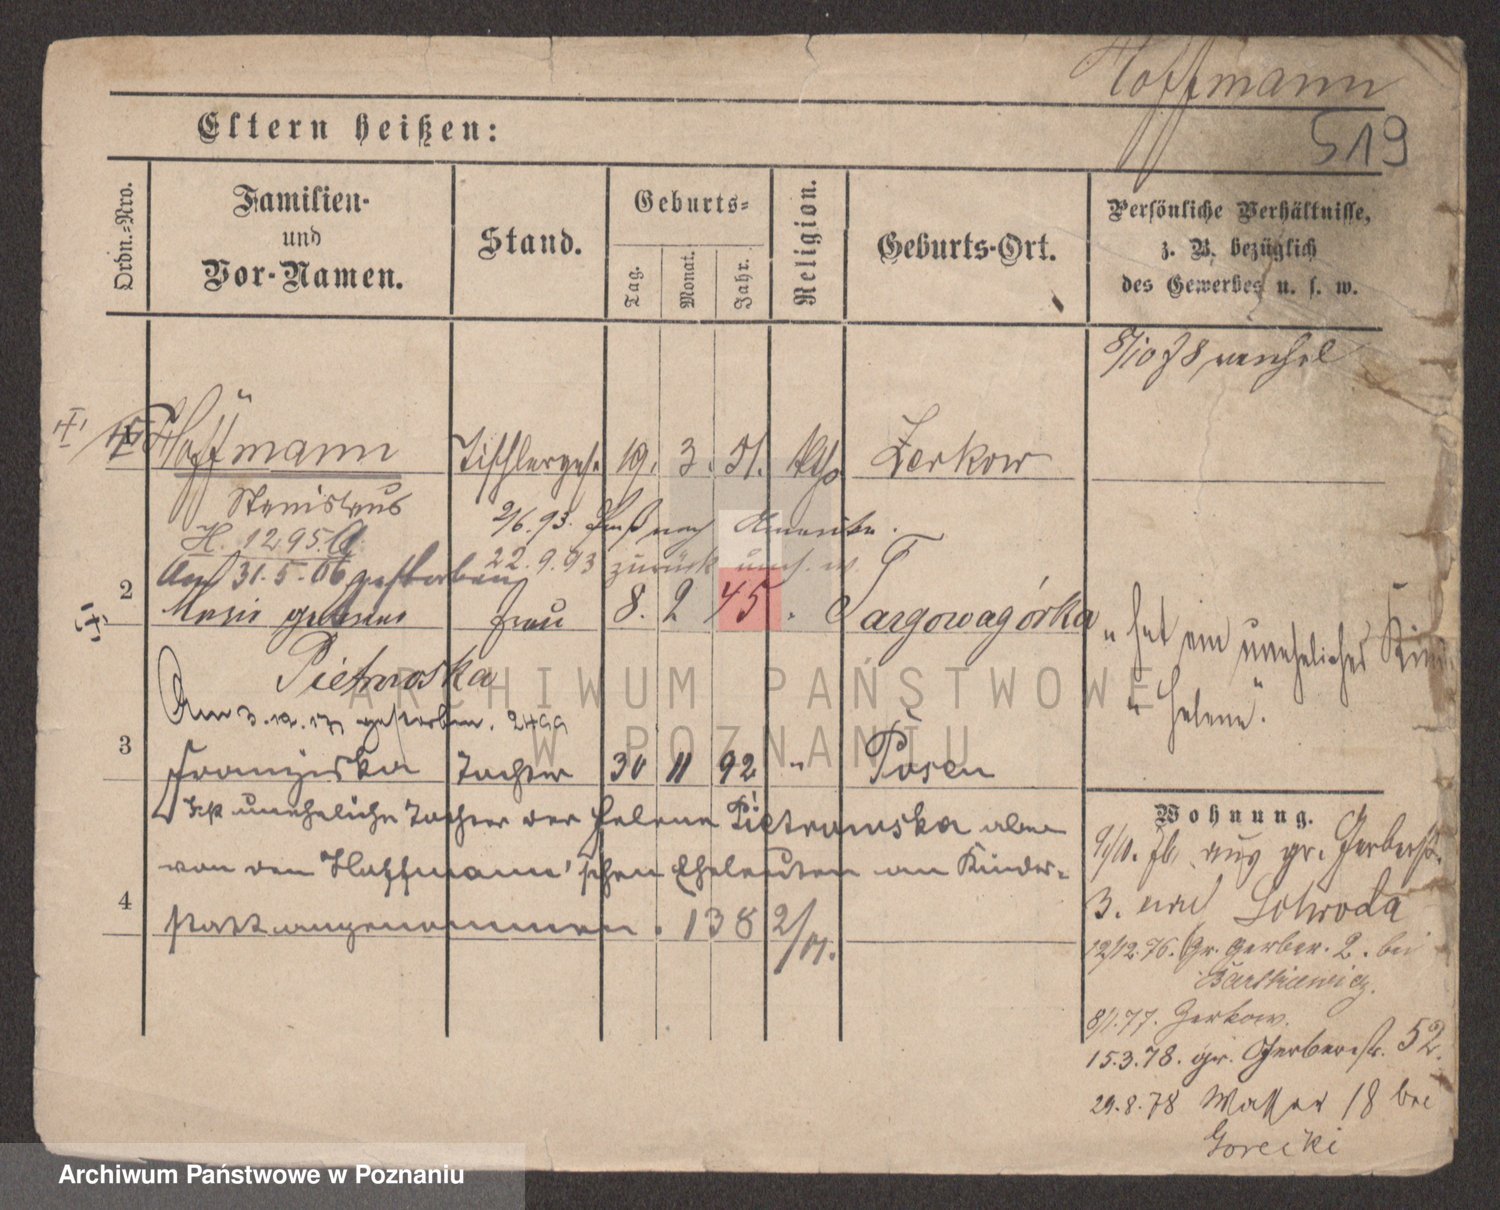 Hoffmann
519
Eltern heißen:
Ordn.-Nro.
Familien-
und
Vor-Namen.
Stand.
Geburts-
Tag.
Monat.
Jahr.
Religion.
Geburts-Ort.
Persönliche Verhältnisse,
z. B. bezüglich
des Gewerbes u. s. w.
1 Hoffmann Tischlerges. 19. 3. 51. kth. Żerkow
Stanislaus
2/6.93. Paß nach Amerika.
H. 1295.
22.9.93 zurück
Am 31.5.06 gestorben
2
Marie geborene Frau 8. 2 45. Targowagórka
Pietrowska
" hat ein uneheliches Kind
" Helene".
Am 3. 12. 17 gestorben. 2499
3 Franziska Tochter 30 11 92 " Posen
Ist uneheliche Tochter der Helene Pietrowska aber
von den Hoffmann'schen Eheleuten an Kindes-
4 statt angenommen. 138 2/01.
Wohnung.
9/10. 76 aus gr. Gerberstr.
3. und Schroda
12/12.76. Gr. Gerber. 2. bei
Bartkiewicz.
8/1.77. Zerkow.
15.3.78. gr. Gerberstr. 52.
29.8.78 Wasser 18 bei
Gorecki
ARCHIWUM PAŃSTWOWE
W POZNANIU
Archiwum Państwowe w Poznaniu